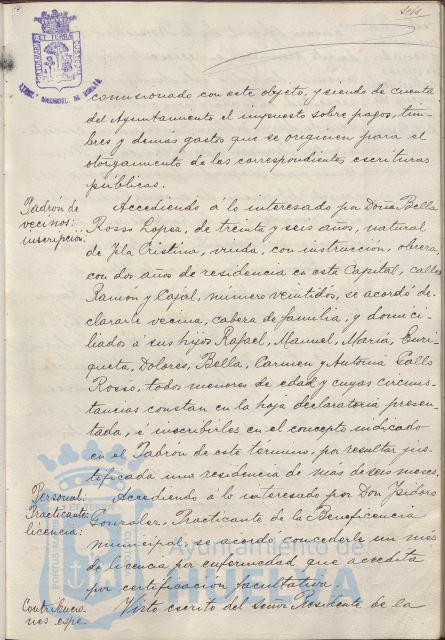 Seis
PORTUS MARIS ET TERRAE CUSTODIA
comisionado con este objeto, y siendo de cuenta
del Ayuntamiento el impuesto sobre pagos, tim-
bres y demás gastos que se originen para el
otorgamiento de las correspondientes escrituras
públicas.
Padrón de
vecinos:
inscripción.
Accediendo á lo interesado por Doña Bella
Rosso Lopez, de treinta y seis años, natural
de Isla Cristina, viuda, con instrucción, obrera,
con dos años de residencia en esta Capital, calle
Ramón y Cajal, número veintidos, se acordó de-
clararle vecina, cabeza de familia, y domici-
liados á sus hijos Rafael, Manuel, Maria, Enri-
queta, Dolores, Bella, Carmen y Antonia Gallo
Rosso, todos menores de edad y cuyas circuns-
tancias constan en la hoja declaratoria presen-
tada, é inscribirles en el concepto indicado
en el Padrón de este término, por resultar jus-
tificada una residencia de más de seis meses.
Personal:
Practicante:
licencia:
Accediendo á lo interesado por Don Isidoro
Gonzalez, Practicante de la Beneficencia
municipal, se acordó concederle un mes
de licencia por enfermedad que acredita
por certificación facultativa.
Contribucio-
nes espe-
Visto escrito del señor Presidente de la
Ayuntamiento de
HUELVA